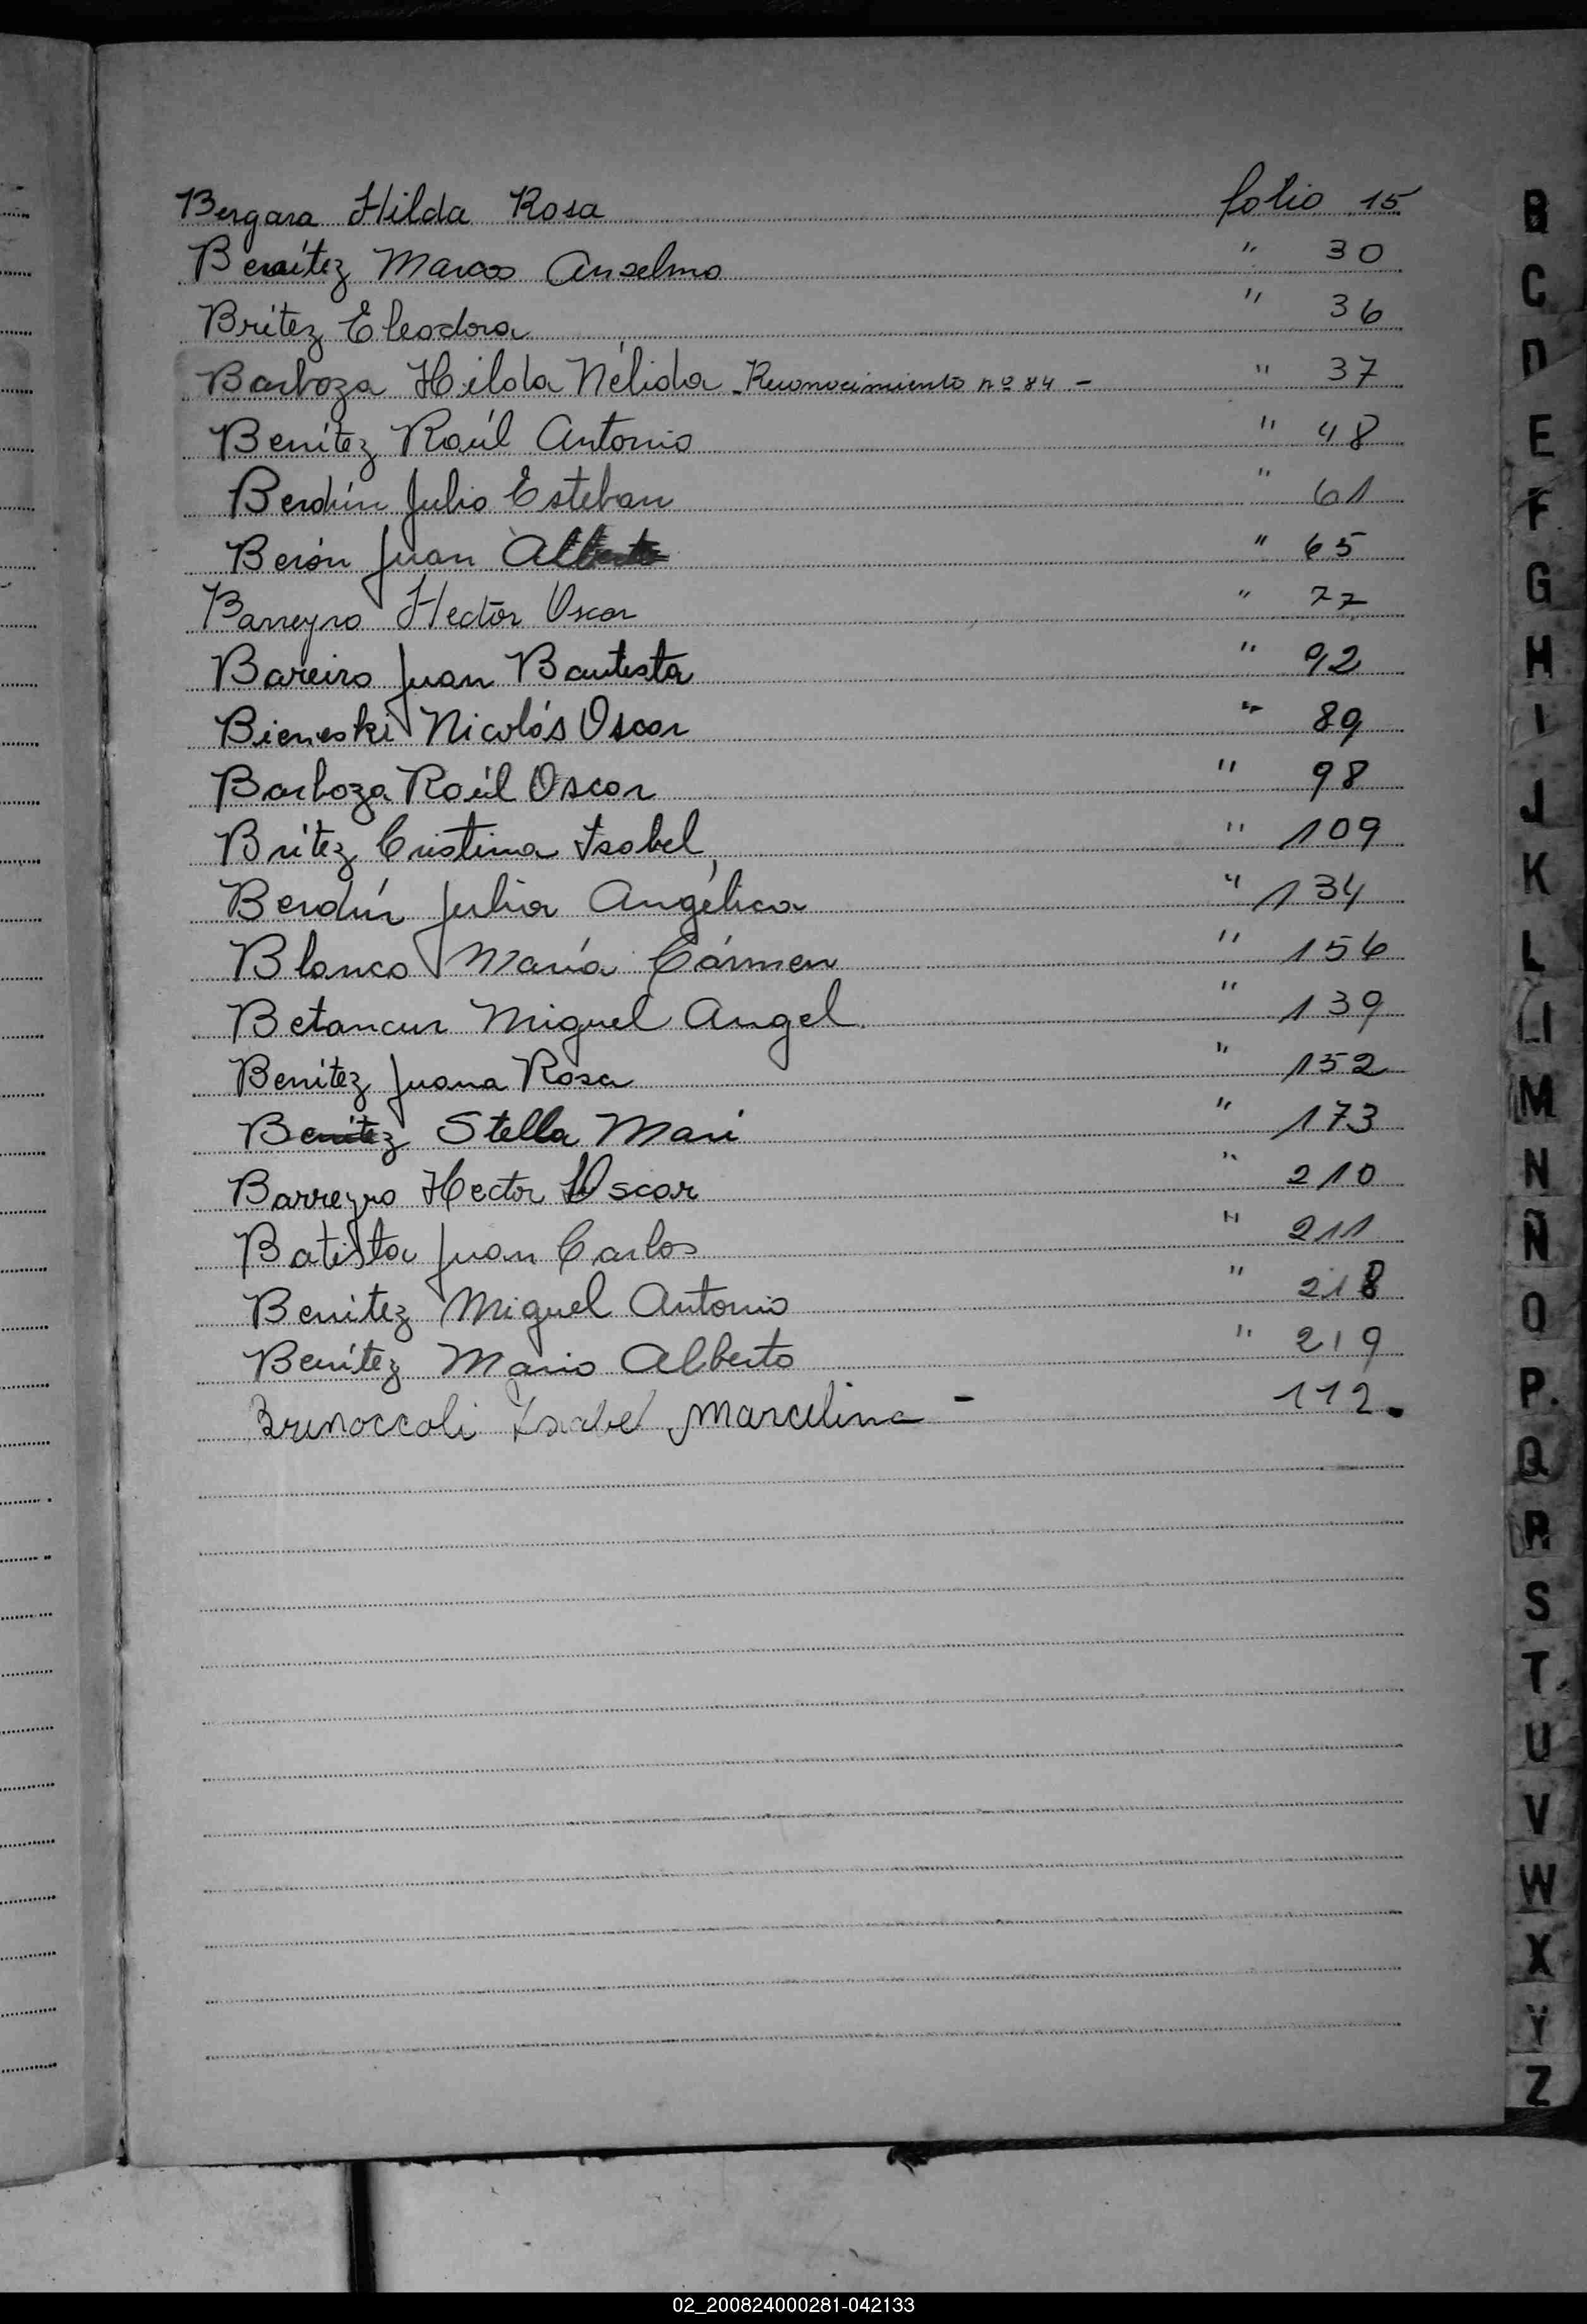 Bergara Hilda Rosa folio 15
Benítez Marcos Anselmo " 30
Brítez Eleodora " 36
Barboza Hilda Nélida - Reconocimiento nº 84 - " 37
Benítez Raúl Antonio " 48
Berdún Julio Esteban " 61
Berón Juan Alberto " 65
Barreyro Hector Oscar " 77
Bareiro Juan Bautista " 92
Bieneski Nicolás Oscar " 89
Barboza Raúl Oscar " 98
Brítez Cristina Isabel " 109
Berdún Julia Angélica " 134
Blanco María Cármen " 156
Betancur Miguel Angel " 139
Benítez Juana Rosa " 152
Benítez Stella Mari " 173
Barreyro Hector Oscar " 210
Batista Juan Carlos " 211
Benitez Miguel Antonio " 218
Benítez Mario Alberto " 219
Brunoccoli Isabel Marcelina - 112.
B
C
D
E
F
G
H
I
J
K
L
LI
M
N
Ñ
O
P
Q
R
S
T
U
V
W
X
Y
Z
02_200824000281-042133